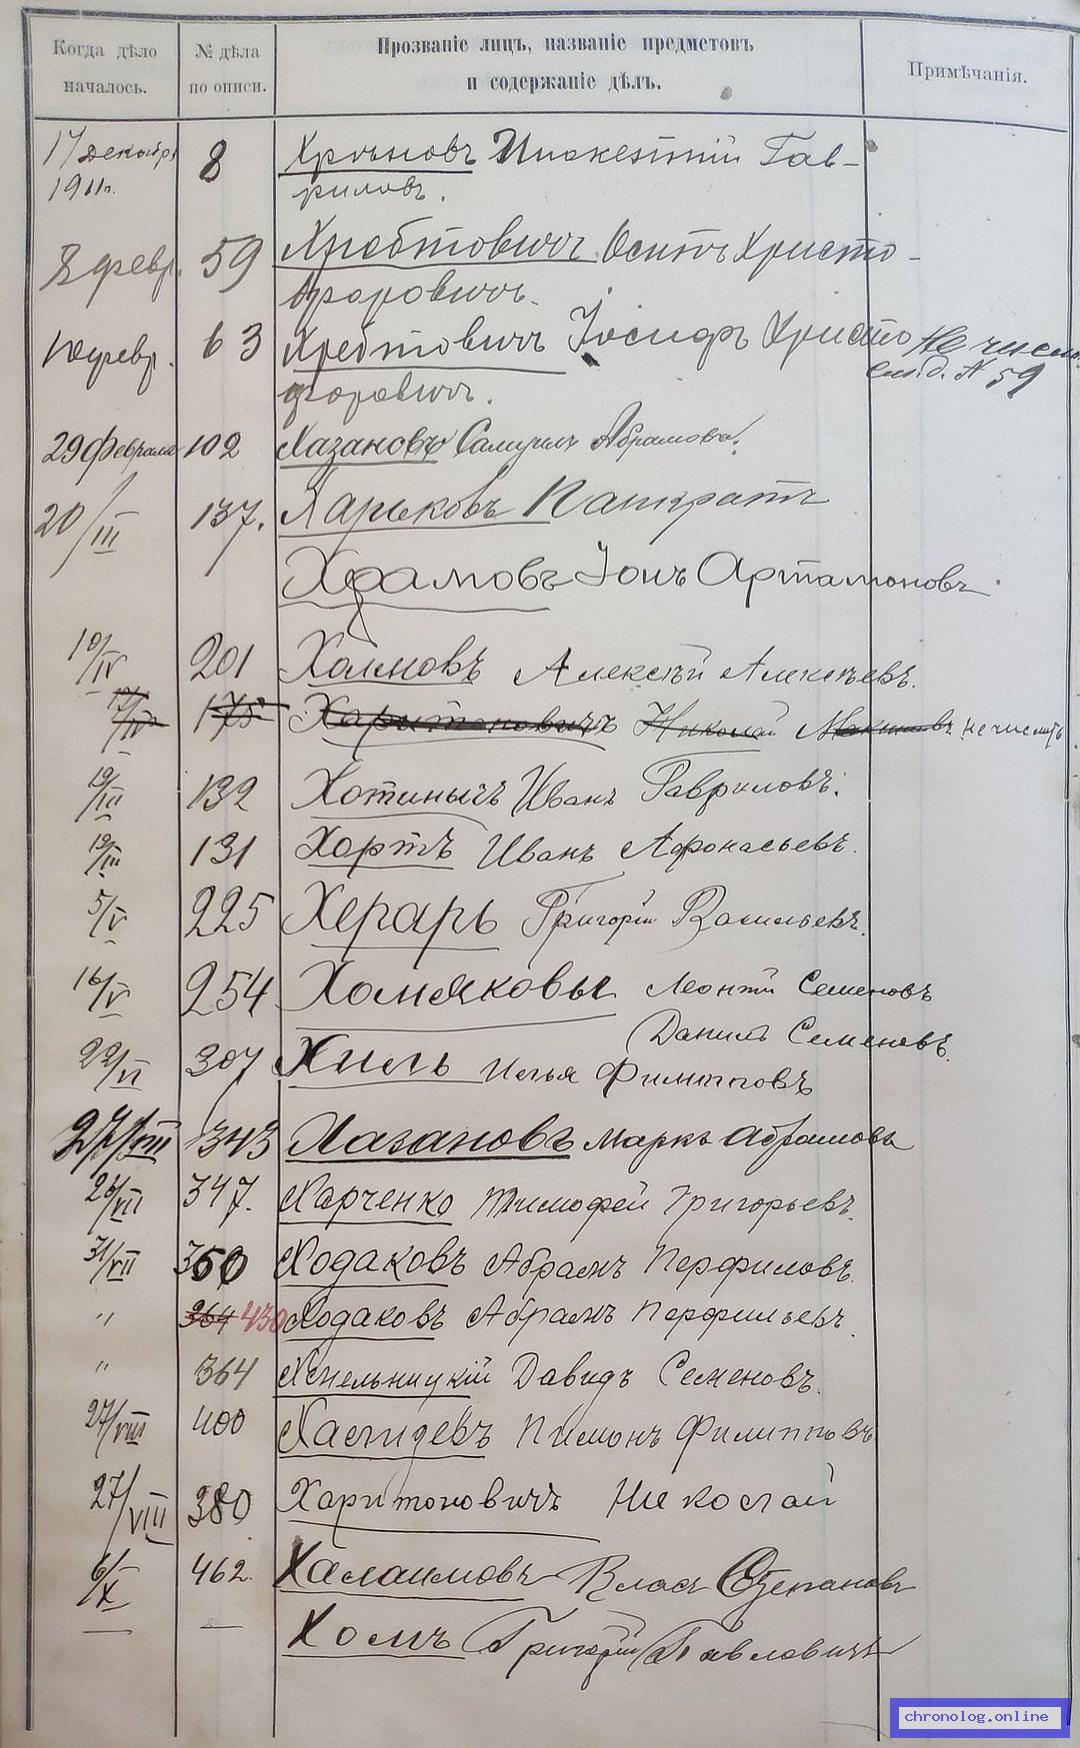 Когда дѣло началось.
№ дѣла по описи.
Прозваніе лицъ, названіе предметовъ
и содержаніе дѣлъ.
Примѣчанія.
17 декабр. 8 Иннокентій Гав-
1911г. риловъ.
8 февр. 59 Хребтовичъ Осипъ Христо-
форовичъ.
10 февр. 63 Хребтовичъ Іосифъ Христо Не числ.
форовичъ. см. д. № 59
29 февраля 102 Хазановъ Самуилъ Абрамов.
20/III 137. Харьковъ Панкратъ
Храмовъ Іонъ Артамоновъ.
10/IV 201 Алексѣй Алексѣевъ.
175 Харитоновичъ Николай не числитъ
19/III 132 Хотиничъ Иванъ Гавриловъ.
19/III 131 Хортъ Иванъ Афонасьевъ.
5/V 225 Херарь Григорій Васильевъ.
16/V 254 Хомяковы Леонтій Семеновъ
Данилъ Семеновъ.
22/VI 307 Хиль Илья Филипповъ
27/VIII 343 Хазановъ Маркъ Абрамовъ
26/VII 347. Харченко Тимофей Григорьевъ.
31/VII 350 Ходаковъ Абрамъ Перфиловъ.
" 364 430 Ходаковъ Абрамъ Перфильевъ.
" 364 Хмельницкій Давидъ Семеновъ.
27/VIII 400 Пимонъ Филипповъ
27/VIII 380 Харитоновичъ Николай
6/X 462. Халаимовъ Власъ Степановъ
— — Хомъ Григорій Павловичъ
chronolog.online